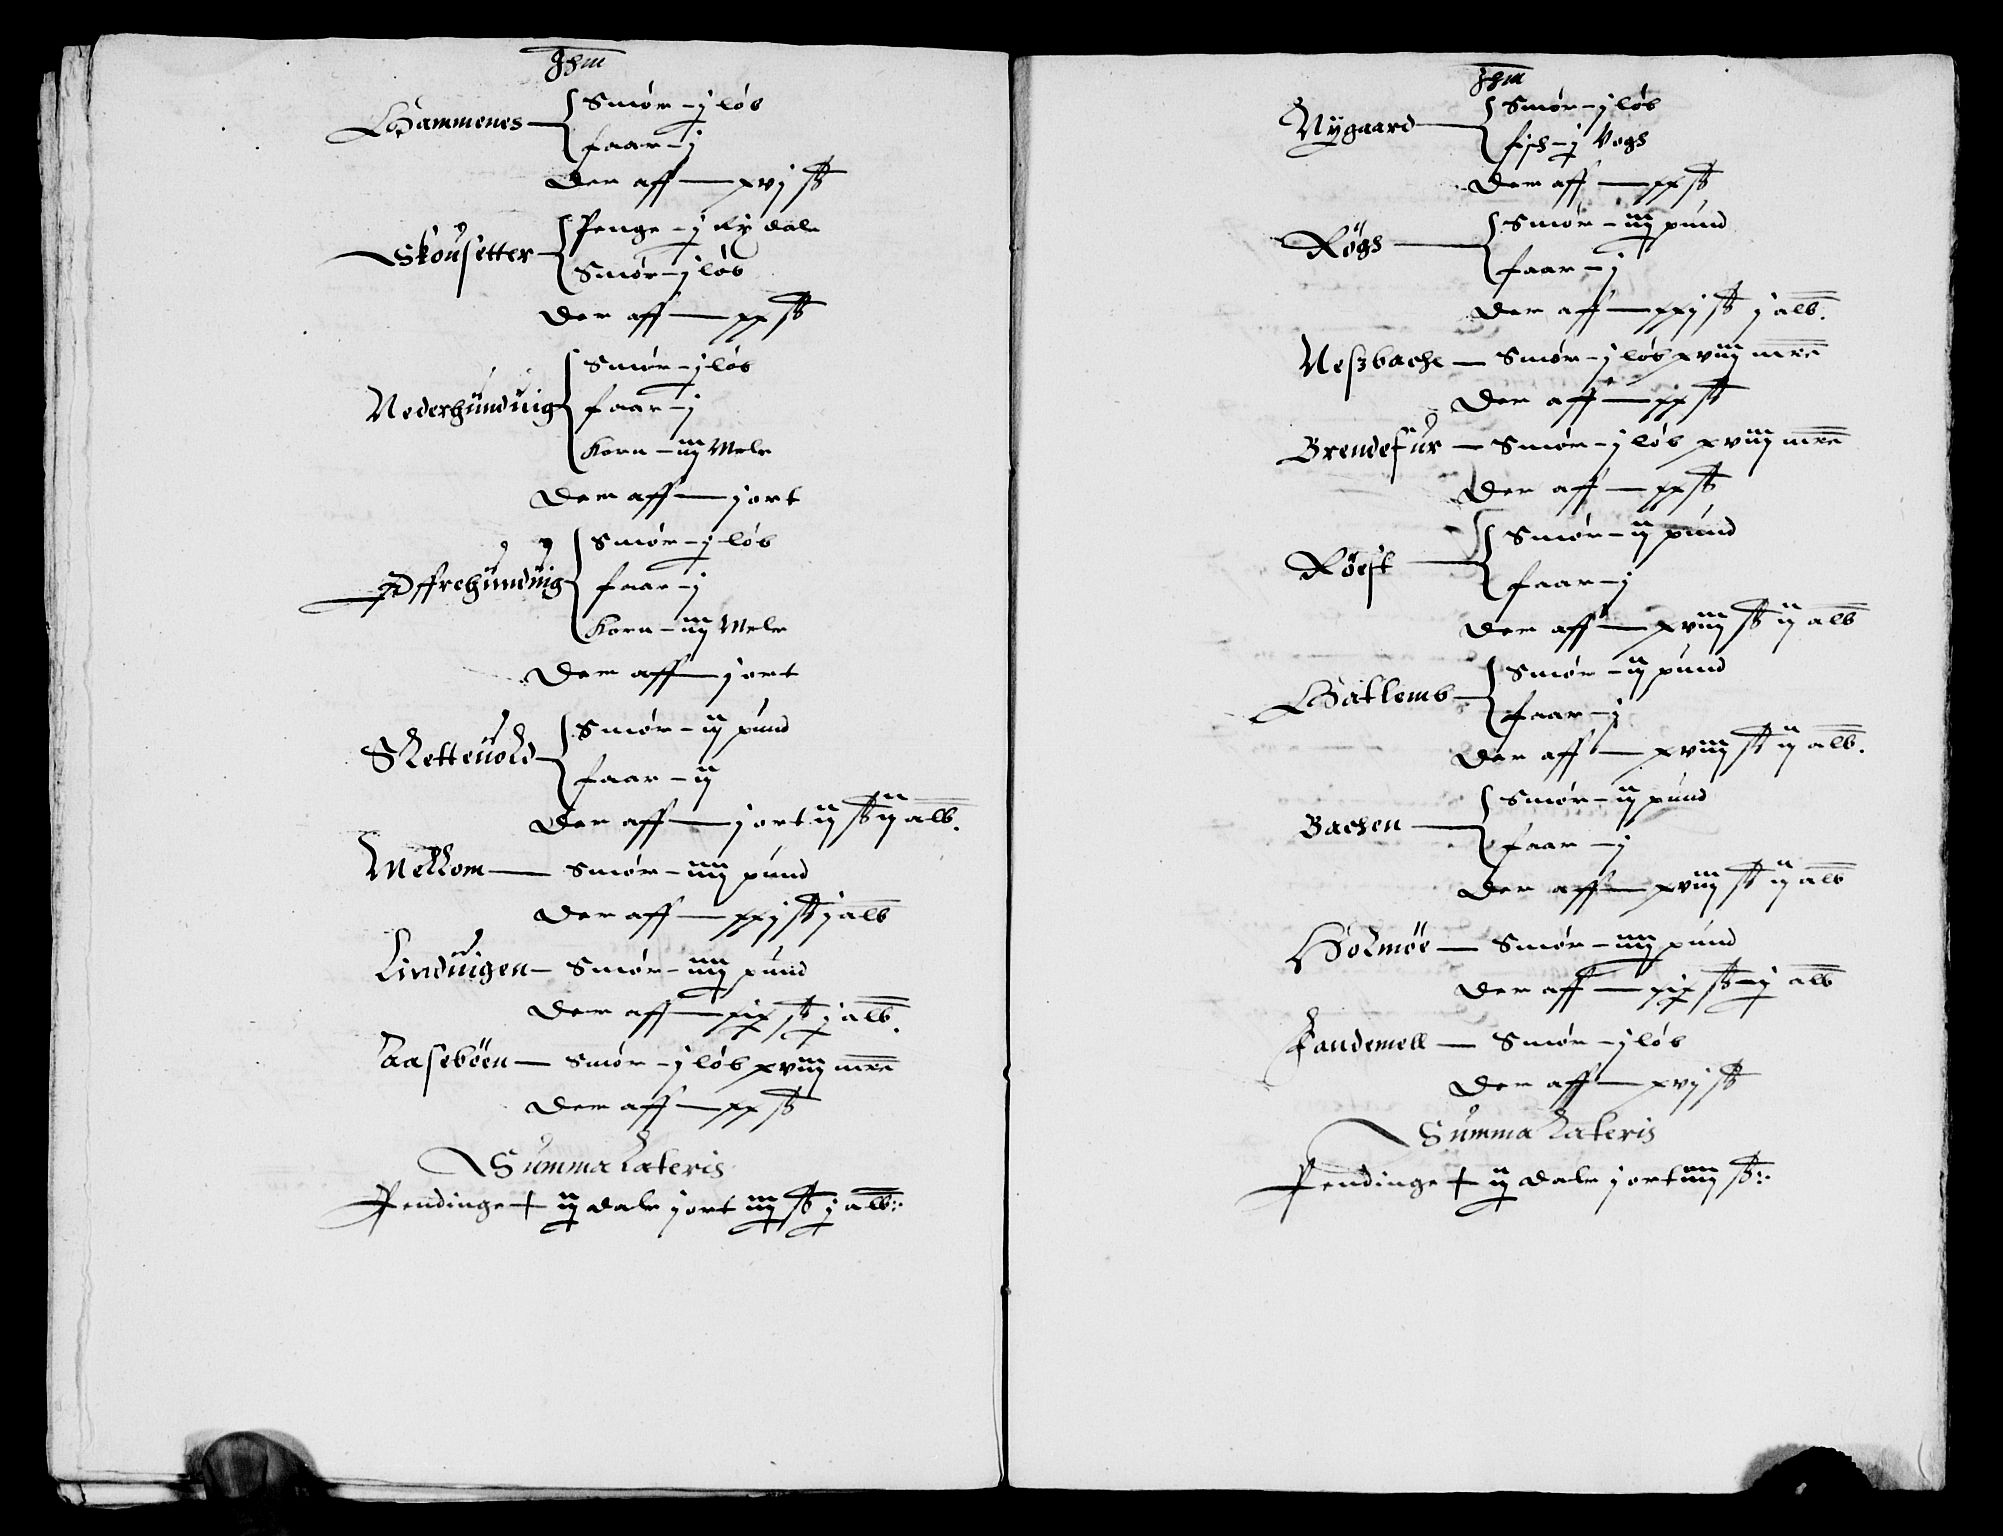 Jhm
Hammenes { Smør – j løb
faar – j
Der aff — xvj ß
Skousetter { Penge – j Rx dale
Smør – j løb
Der aff — xx ß
Nederhunduig { Smør – j løb
faar – j
Korn – iij Mele
Der aff — j ort
Offrehunduig { Smør – j løb
faar – j
Korn – iij Mele
Der aff — j ort
Sletteuold { Smør – ij pund
faar – ij
Der aff — j ort ij ß ij alb.
Mellom — Smør – iiij pund
Der aff — xxj ß j alb
Linduigen – Smør – iiij pund
Der aff — xix ß j alb.
Aasebøen — Smør – j løb xviij mrc
Der aff — xx ß
Summa Lateris
Pendinge + ij dale j ort iij ß j alb:
Jhm
Nygaard { Smør – j løb
fisk – j Vogh
Der aff — xx ß
Røgh { Smør – iij pund
faar – j
Der aff — xxj ß j alb.
Neszbache — Smør – j løb xviij mrc
Der aff — xx ß
Brendefur — Smør – j løb xviij mrc
Der aff — xx ß
Røest { Smør – ij pund
faar – j
Der aff — xviij ß ij alb
Hatlemb { Smør – ij pund
faar – j
Der aff — xviij ß ij alb.
Bachen { Smør – ij pund
faar – j
Der aff — xviij ß ij alb
Holmøe — Smør – iiij pund
Der aff — xix ß – j alb
Fandemell — Smør – j løb
Der aff — xvj ß
Summa Lateris
Pendinge + ij dale j ort iiij ß: